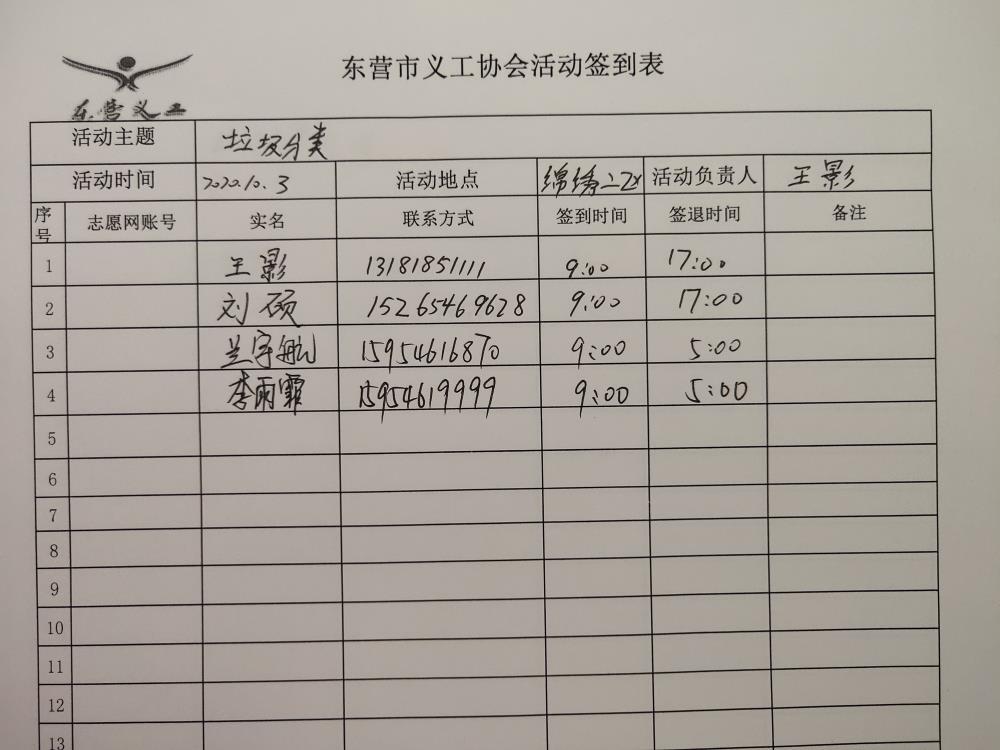 东营市义工协会活动签到表
东营义工
活动主题 垃圾分类
活动时间 2020.10.3 活动地点 绵绣二区 活动负责人 王影
序号 志愿网账号 实名 联系方式 签到时间 签退时间 备注
1 王影 13181851111 9:00 17:00
2 刘硕 15265469628 9:00 17:00
3 兰宇航 15954616870 9:00 5:00
4 李雨霏 15954619999 9:00 5:00
5
6
7
8
9
10
11
12
13